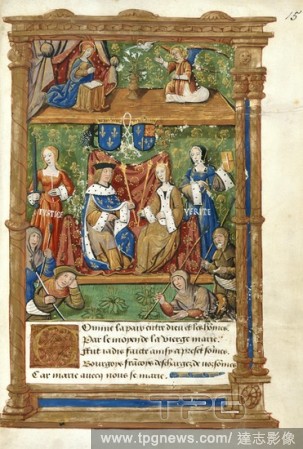 15
IVSTICE
VERITE
Comme la paix entre dieu et les hõmes
Par le moyen de la vierge marie
Fut iadis faicte ainsy a present sommes
Bourgoys francoys deschargez de noz sommes
Car marie avecq nous se marie
TPG
www.tpgnews.com / 達志影像